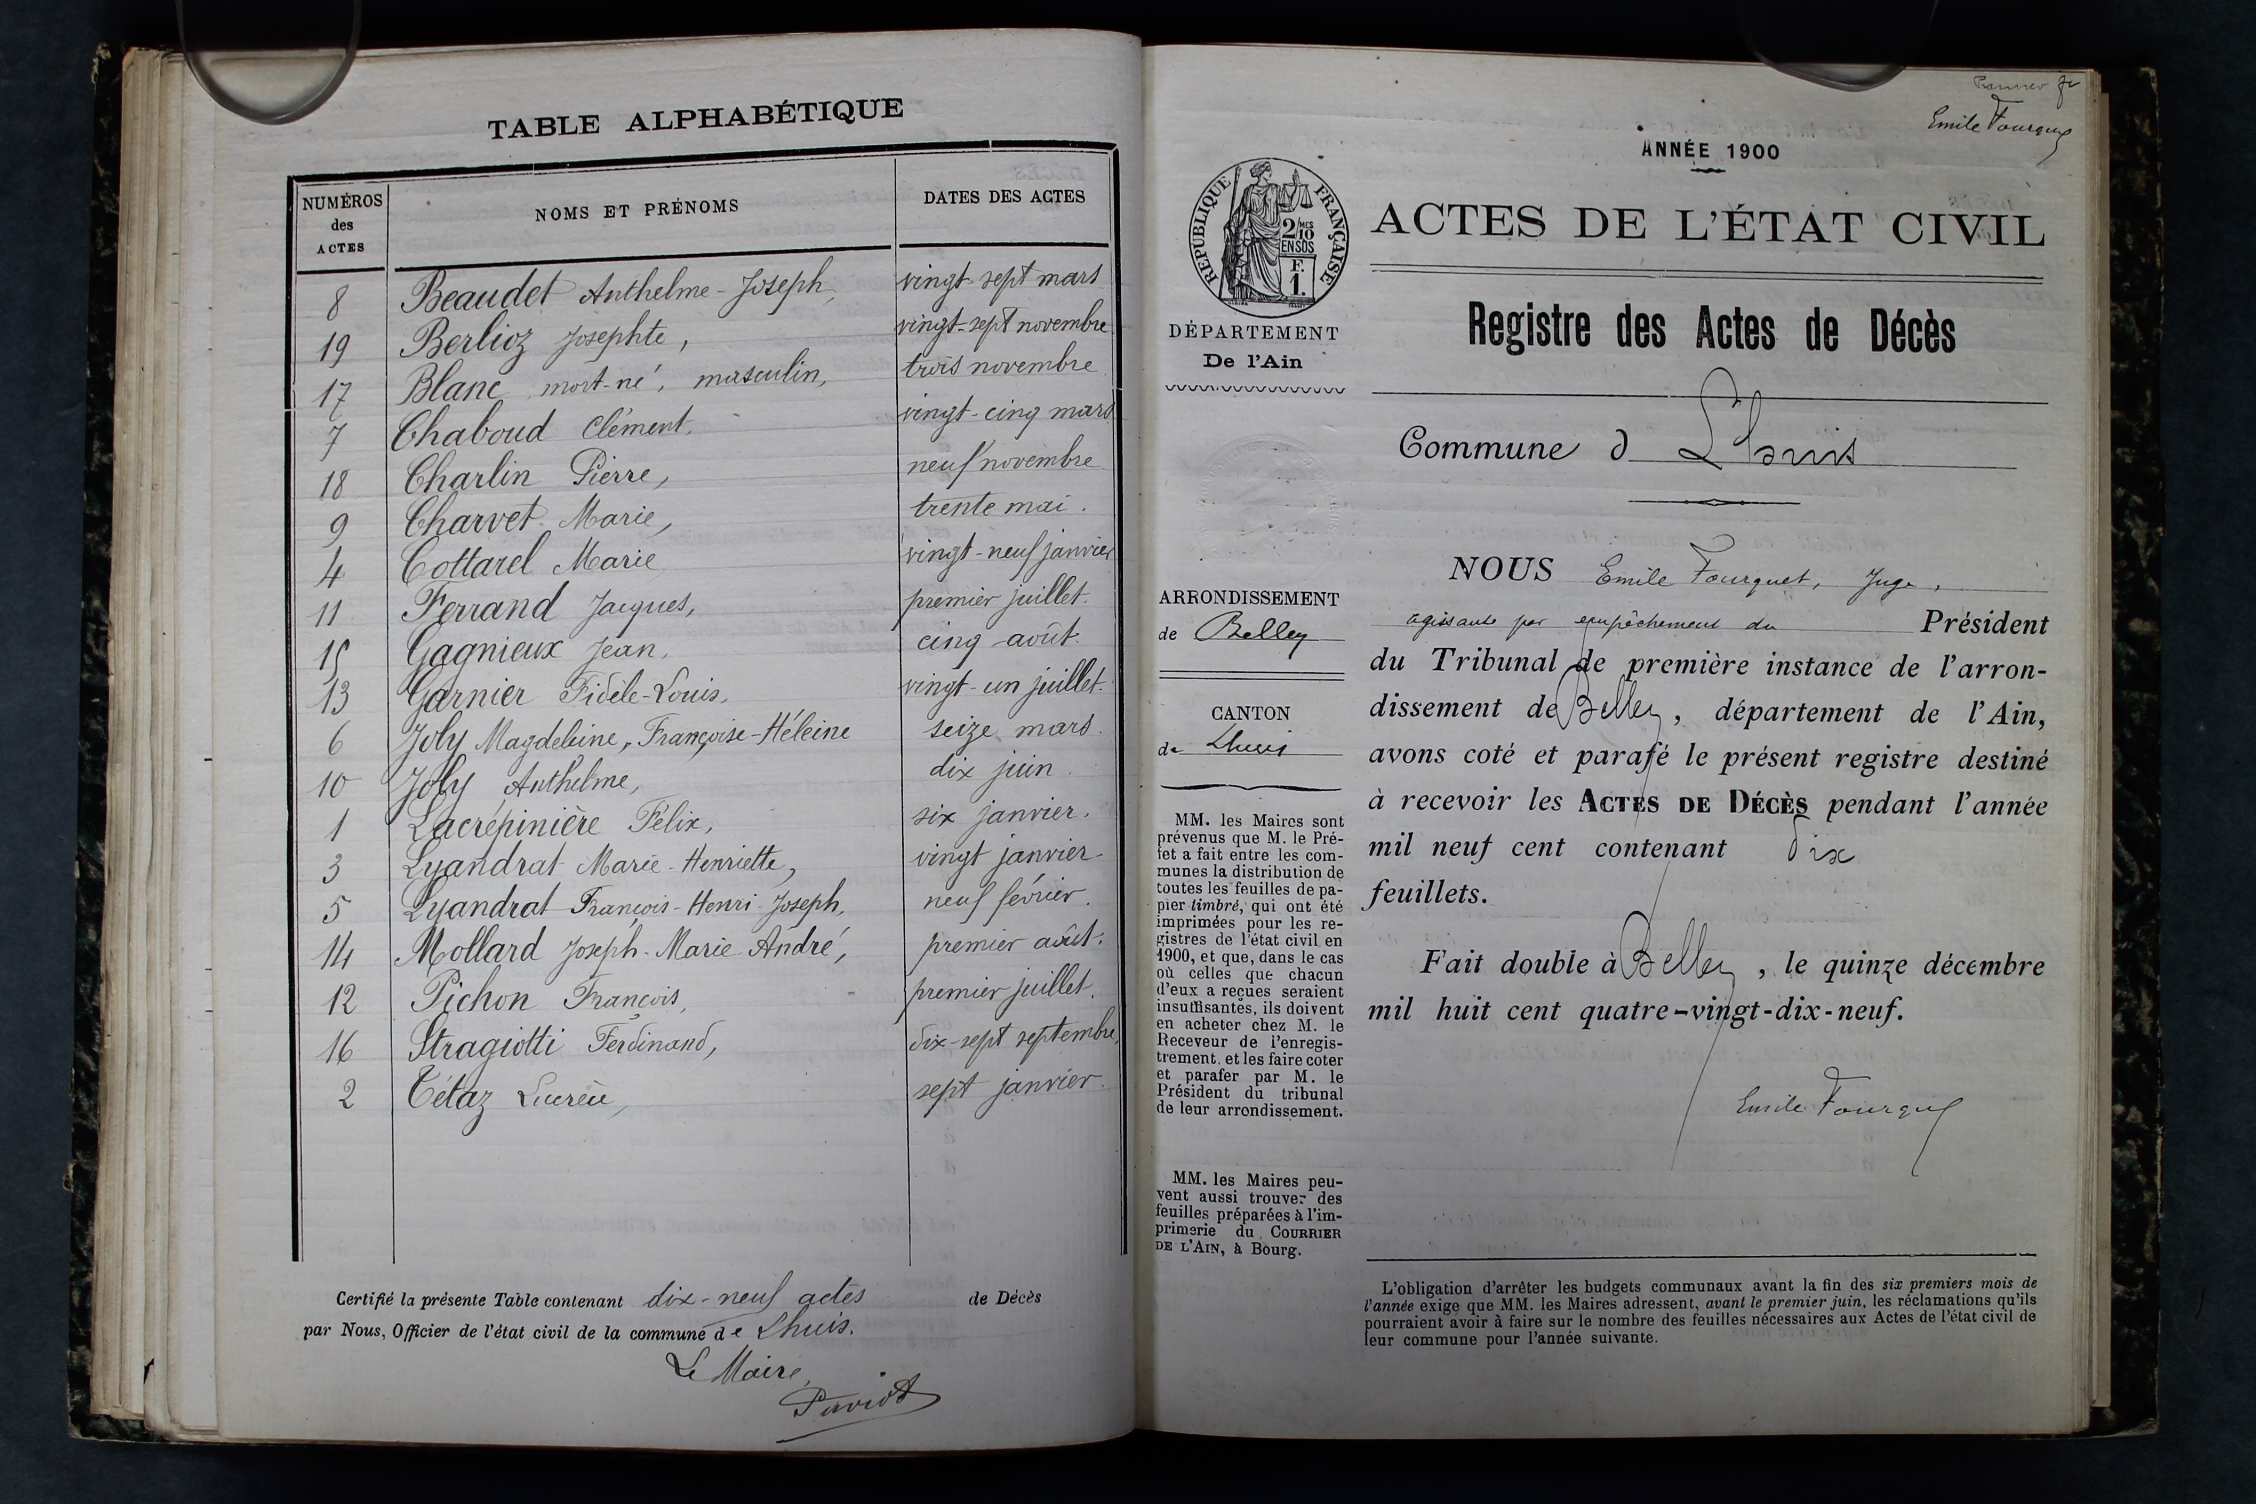 TABLE ALPHABÉTIQUE
NUMÉROS des ACTES NOMS ET PRÉNOMS DATES DES ACTES
8 Beaudet Anthelme-Joseph, vingt-sept mars
19 Berlioz Josephte, vingt-sept novembre
17 Blanc mort-né, masculin, trois novembre
7 Chaboud Clément. vingt-cinq mars
18 Charlin Pierre, neuf novembre
9 Charvet Marie, trente mai.
4 Cottarel Marie vingt-neuf janvier
11 Ferrand Jacques, premier juillet.
15 Gagnieux Jean, cinq août.
13 Garnier Fidèle-Louis, vingt-un juillet.
6 Joly Magdeleine, Françoise-Héleine seize mars.
10 Joly Anthelme, dix juin.
1 Lacrépinière Félix, six janvier.
3 Lyandrat Marie-Henriette, vingt janvier
5 Lyandrat François-Henri-Joseph, neuf février.
14 Mollard Joseph-Marie-André, premier août.
12 Pichon François, premier juillet.
16 Stragiotti Ferdinand, dix-sept septembre,
2 Tétaz sept janvier
Certifié la présente Table contenant dix-neuf actes de Décès
par Nous, Officier de l'état civil de la commune de Lhuis.
Le Maire,
Emile Fourquet
ANNÉE 1900
RÉPUBLIQUE FRANÇAISE
2/10 MES
EN SUS
F.
1.
ACTES DE L'ÉTAT CIVIL
Registre des Actes de Décès
DÉPARTEMENT
De l'Ain
Commune d Lhuis
ARRONDISSEMENT
de Belley
CANTON
de Lhuis
MM. les Maires sont
prévenus que M. le Pré-
fet a fait entre les com-
munes la distribution de
toutes les feuilles de pa-
pier timbré, qui ont été
imprimées pour les re-
gistres de l'état civil en
1900, et que, dans le cas
où celles que chacun
d'eux a reçues seraient
insuffisantes, ils doivent
en acheter chez M. le
Receveur de l'enregis-
trement, et les faire coter
et parafer par M. le
Président du tribunal
de leur arrondissement.
MM. les Maires peu-
vent aussi trouver des
feuilles préparées à l'im-
primerie du COURRIER
DE L'AIN, à Bourg.
NOUS Emile Fourquet, Juge,
agissant par empêchement du Président
du Tribunal de première instance de l'arron-
dissement de Belley, département de l'Ain,
avons coté et parafé le présent registre destiné
à recevoir les ACTES DE DÉCÈS pendant l'année
mil neuf cent contenant dix
feuillets.
Fait double à Belley, le quinze décembre
mil huit cent quatre-vingt-dix-neuf.
Emile Fourquet
L'obligation d'arrêter les budgets communaux avant la fin des six premiers mois de
l'année exige que MM. les Maires adressent, avant le premier juin, les réclamations qu'ils
pourraient avoir à faire sur le nombre des feuilles nécessaires aux Actes de l'état civil de
leur commune pour l'année suivante.